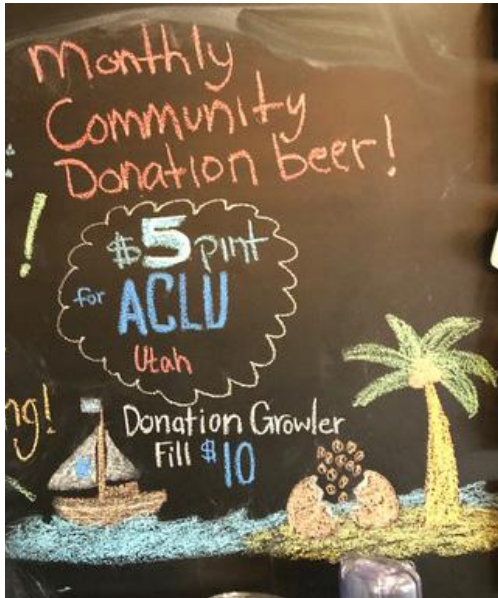 Monthly
Community
Donation beer!
!
$5 pint
for ACLU
Utah
ng!
Donation Growler
Fill $10